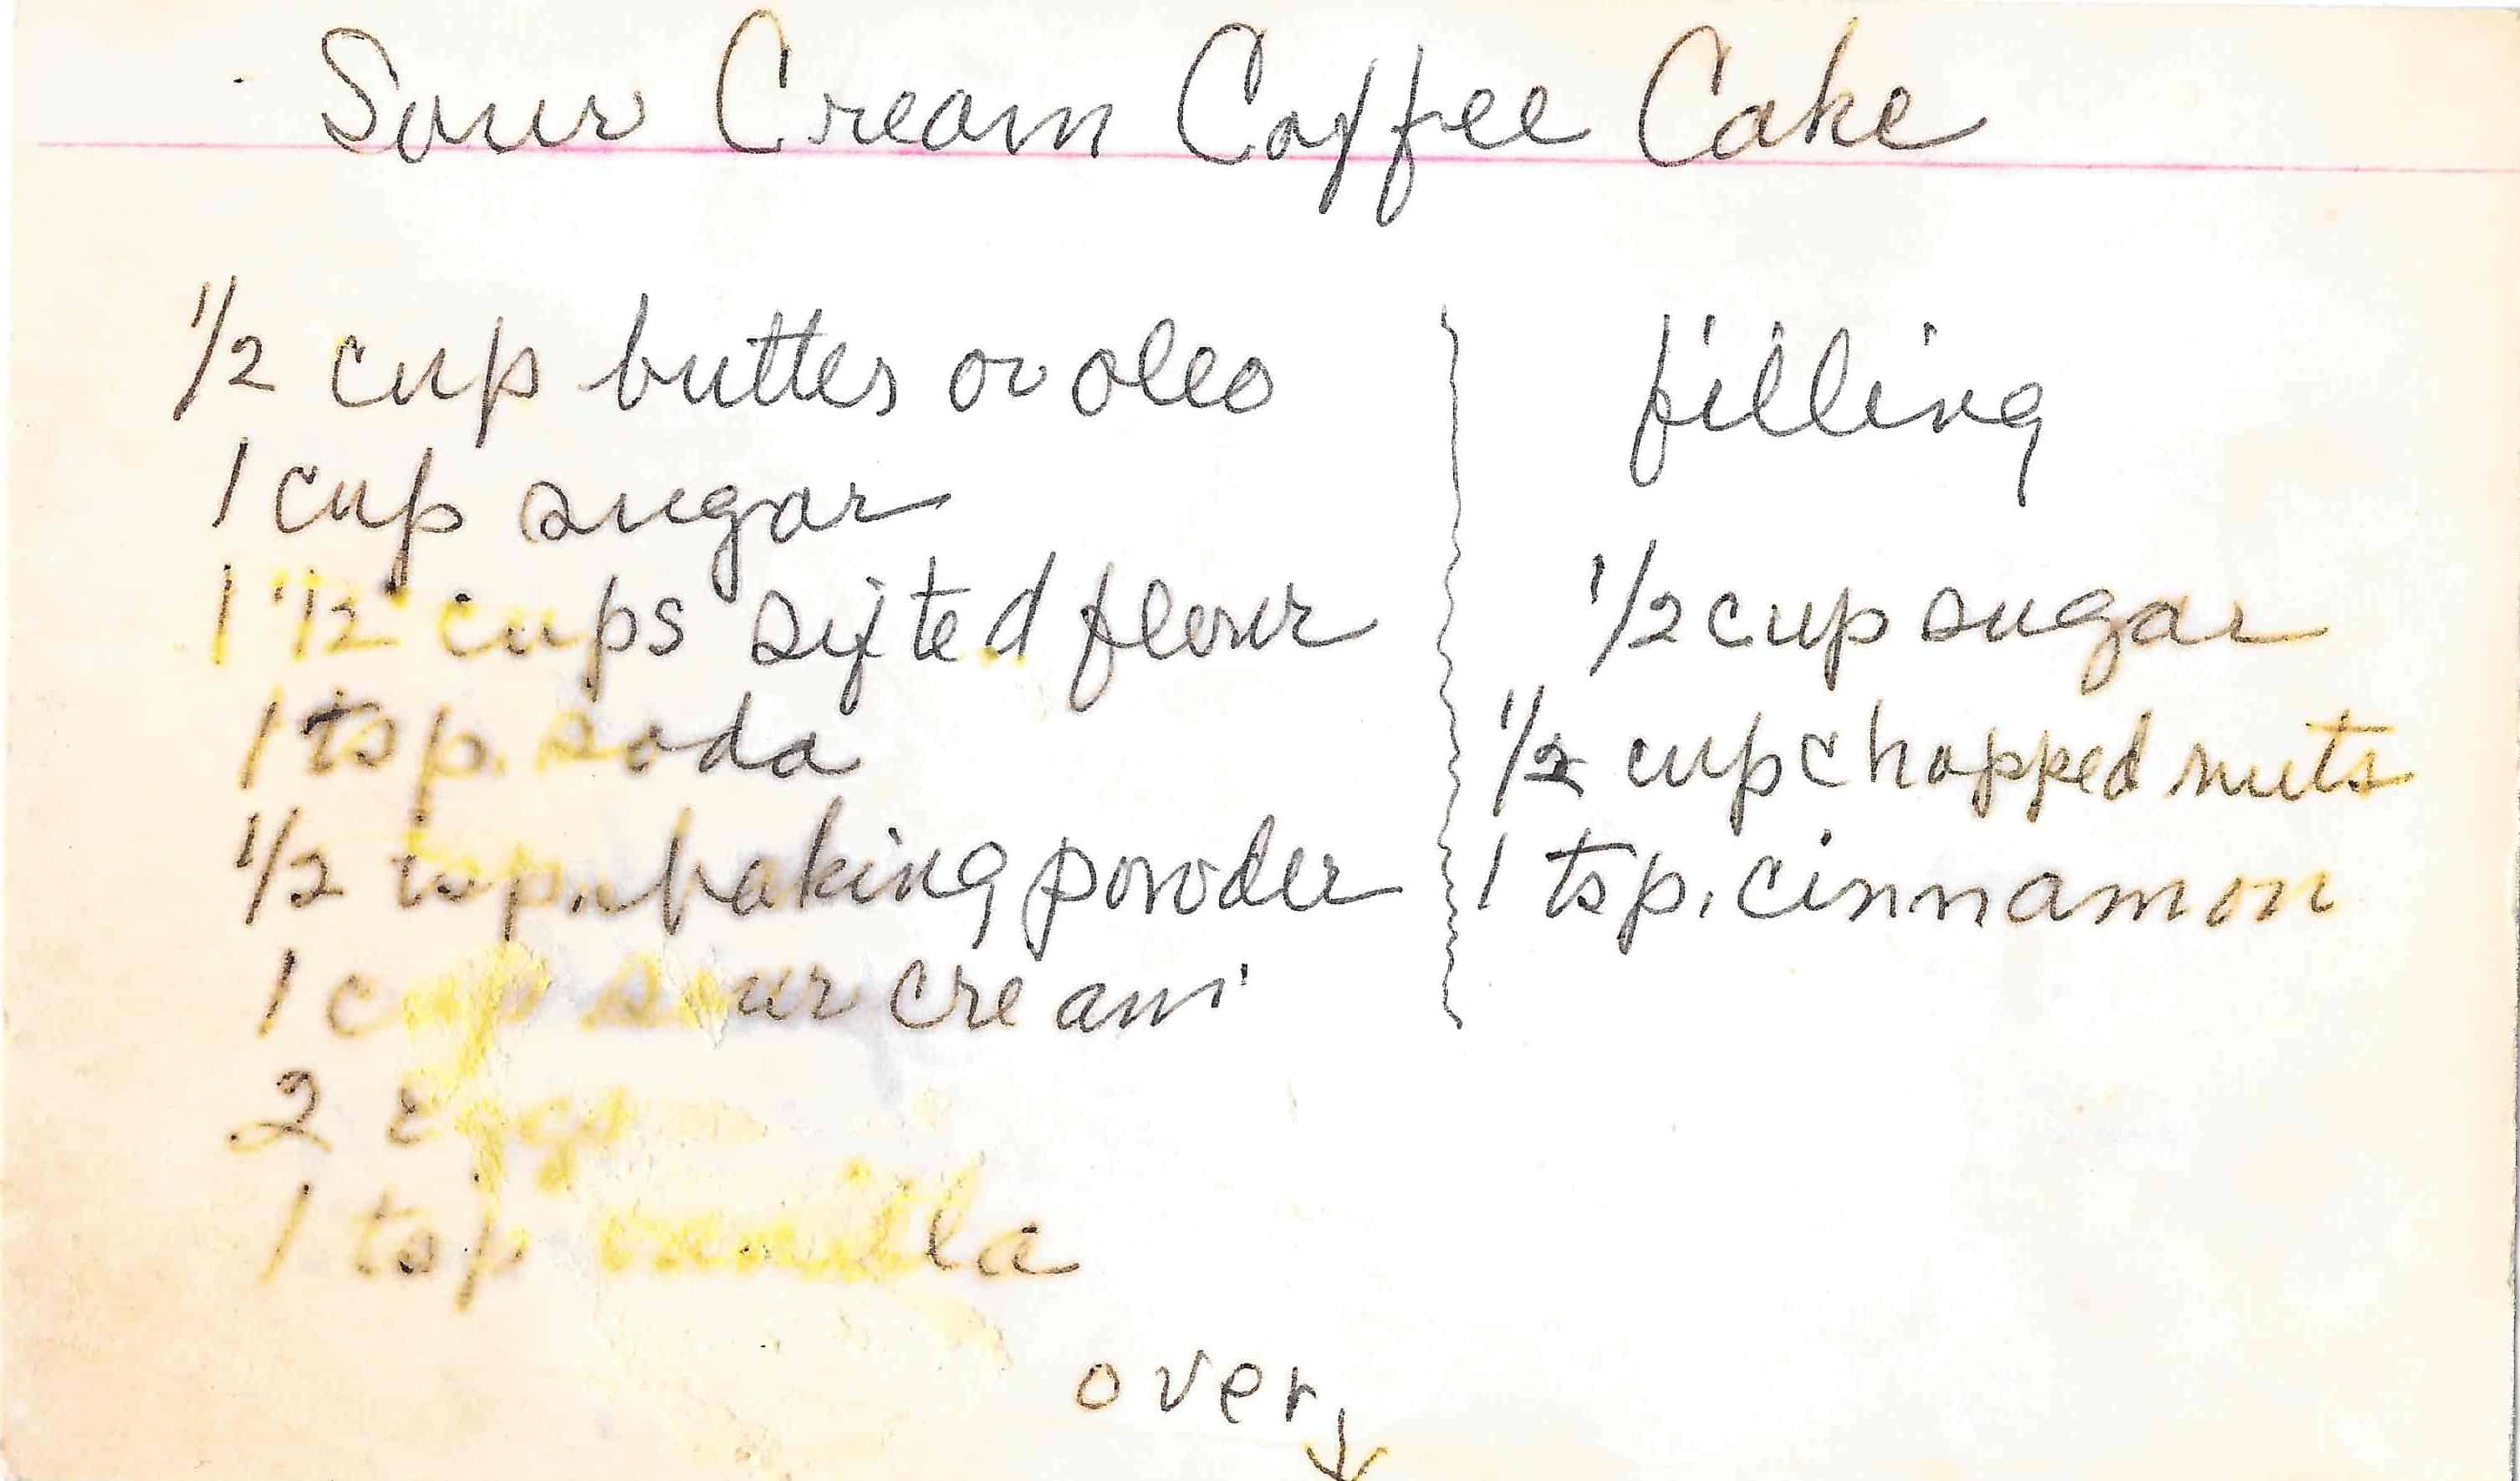 Sour Cream Coffee Cake
1/2 cup butter or oleo
1 cup sugar
1 1/2 cups sifted flour
1 tsp. soda
1/2 tsp. baking powder
1 cup sour cream
2 eggs
1 tsp vanilla
filling
1/2 cup sugar
1/2 cup chopped nuts
1 tsp. cinnamon
over ↓